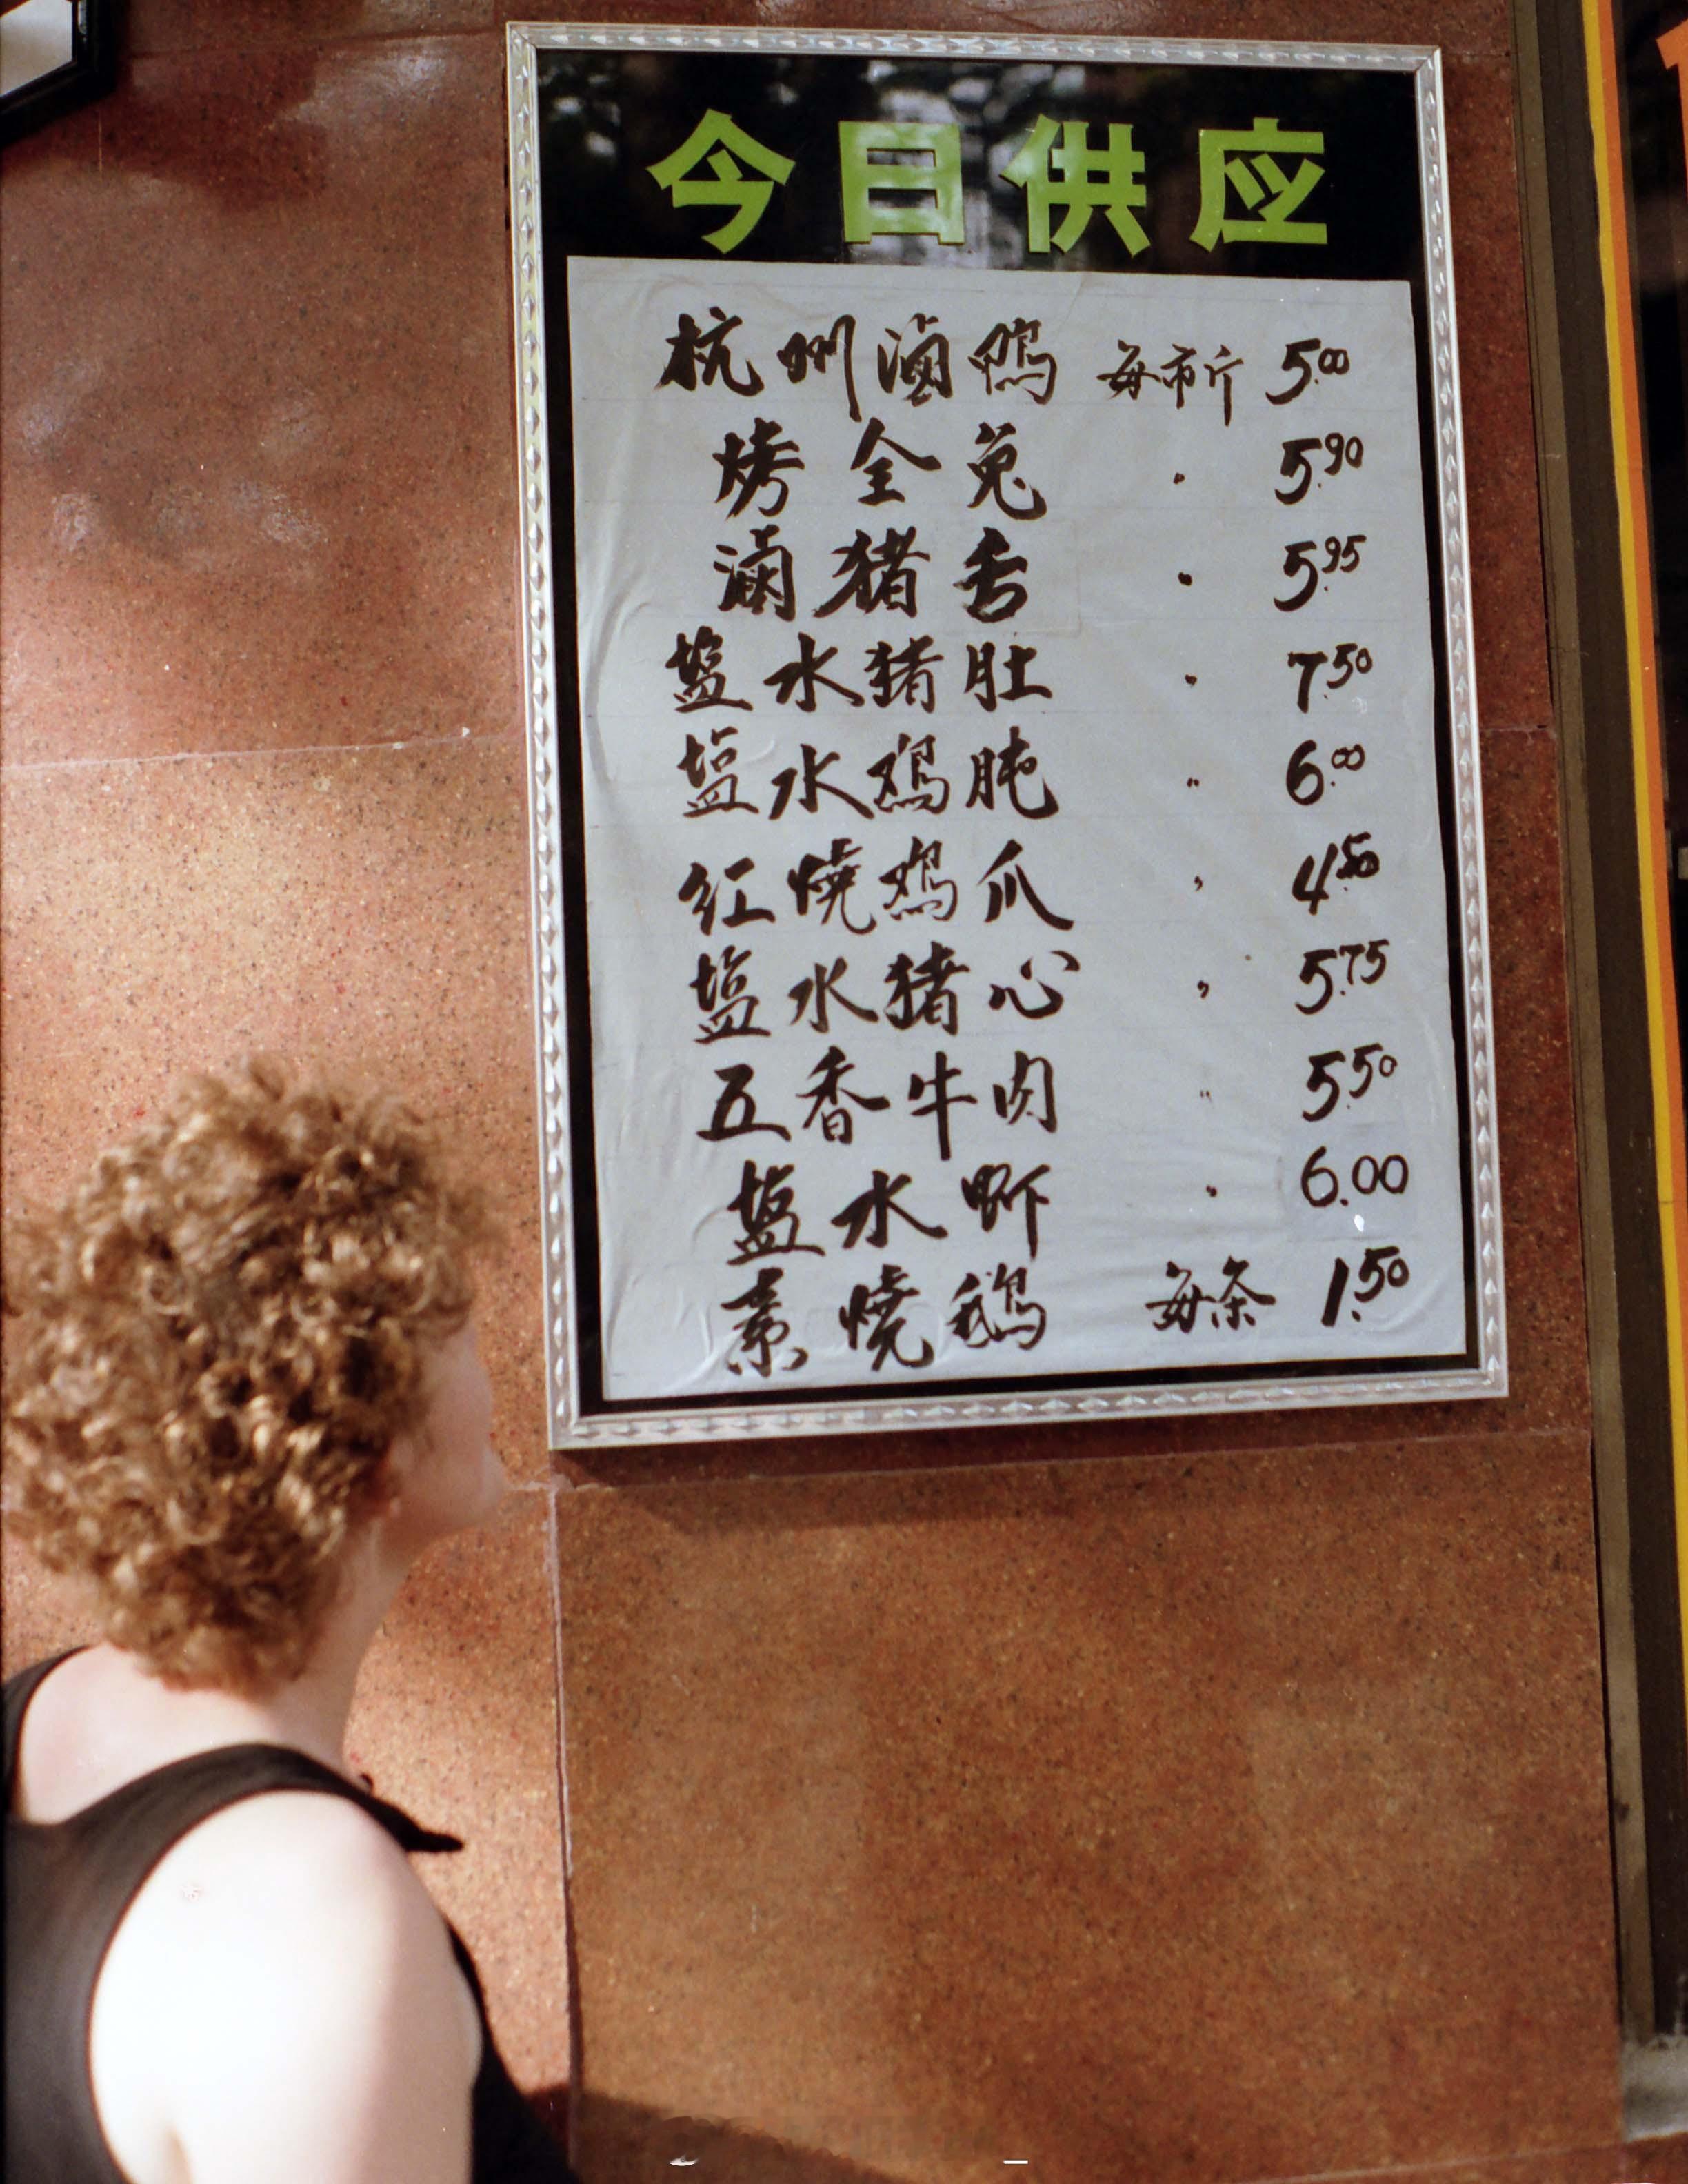 今日供应
杭州滷鸭 每市斤 5.00
烤全兔 〃 5.90
滷猪舌 〃 5.95
盐水猪肚 〃 7.50
盐水鸡肫 〃 6.00
红燒鸡爪 〃 4.50
盐水猪心 〃 5.75
五香牛肉 〃 5.50
盐水 〃 6.00
素燒鹅 每条 1.50